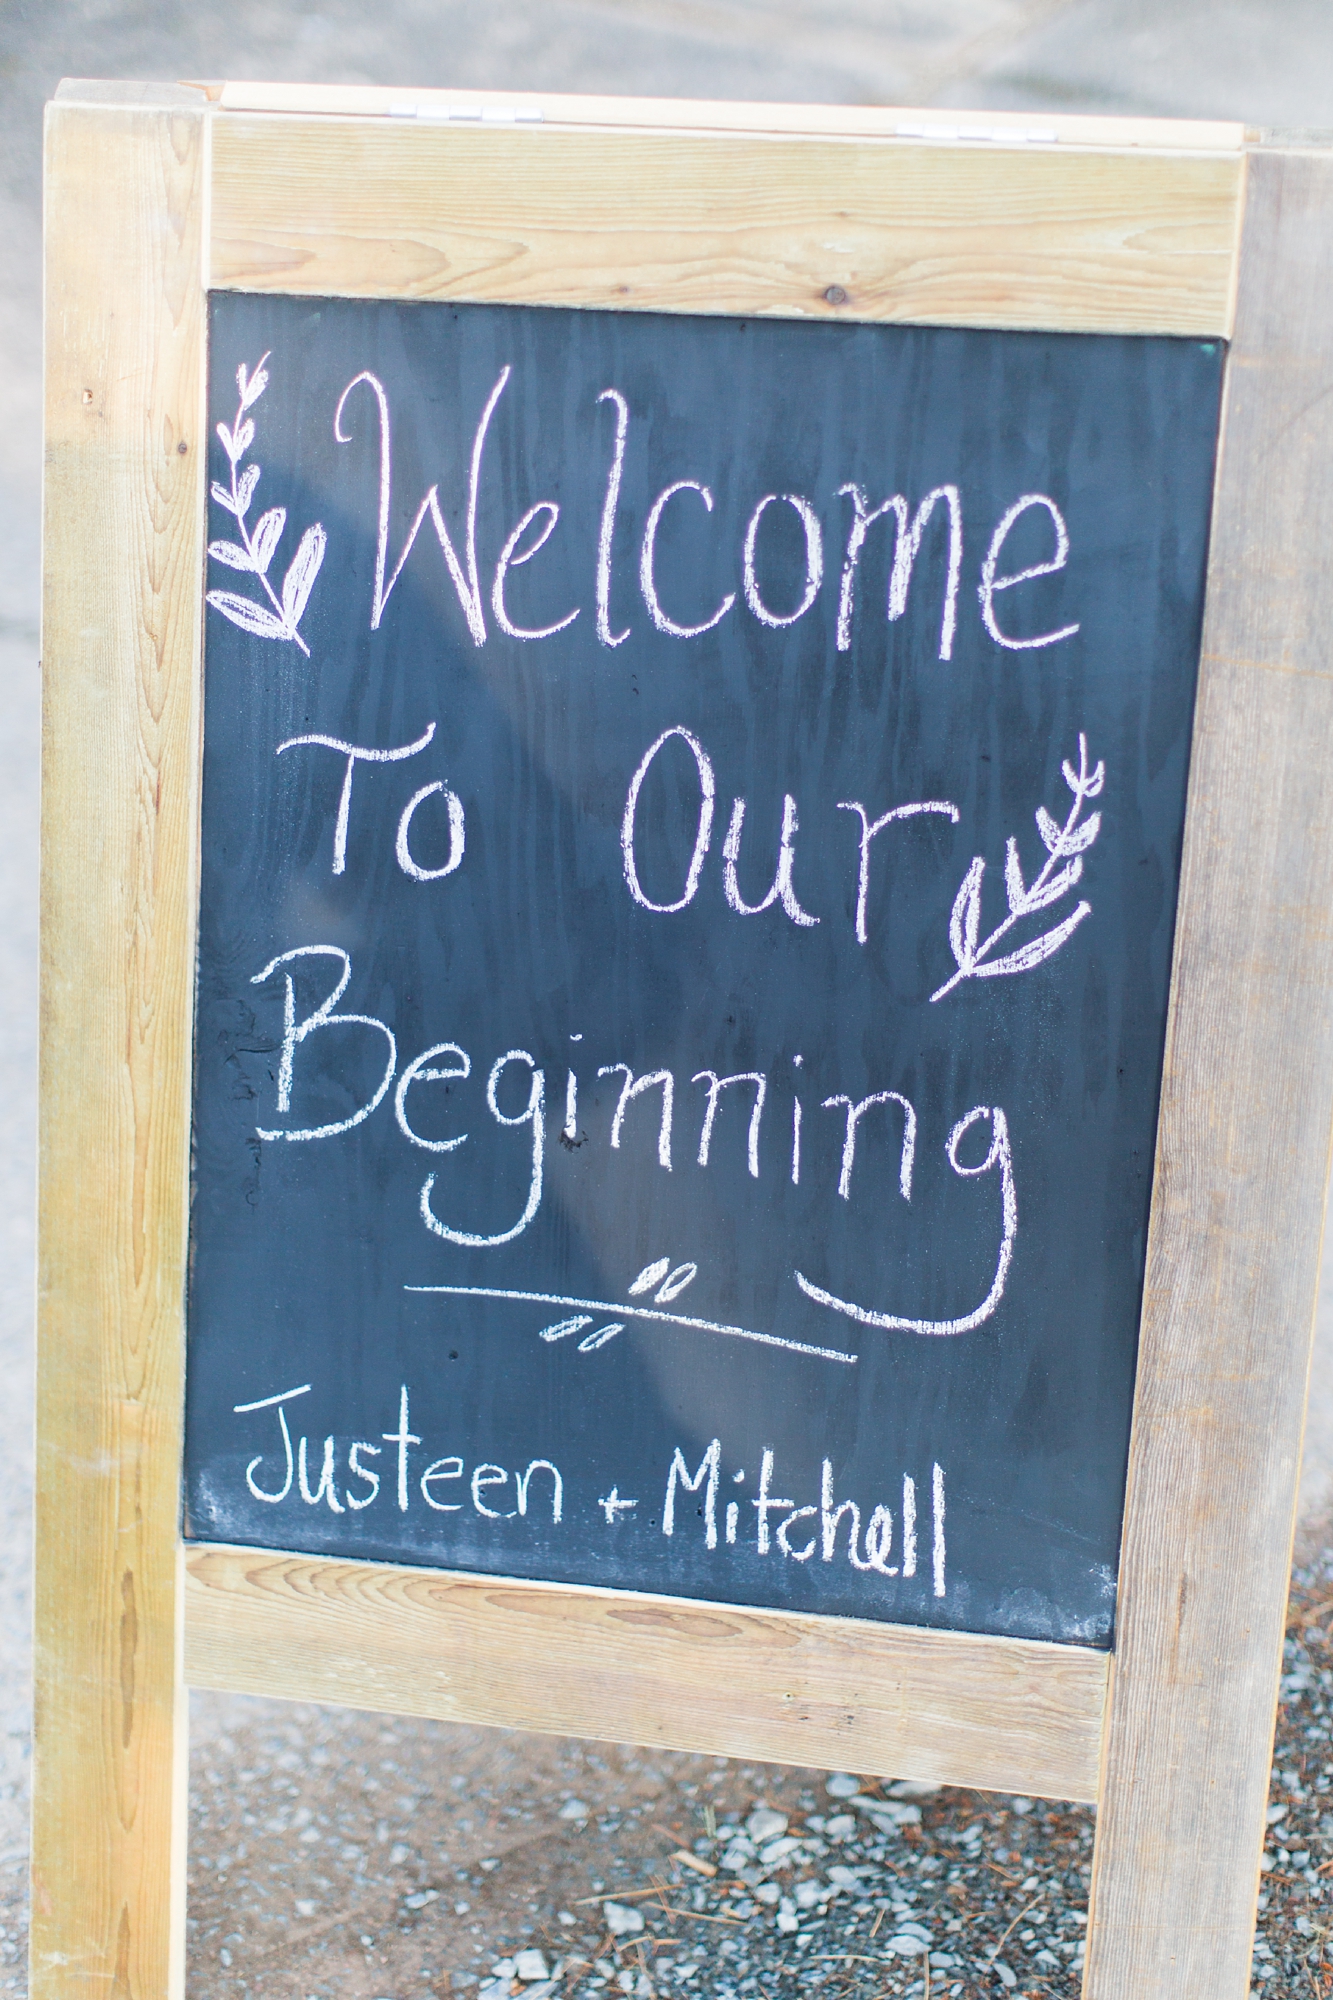 Welcome
To Our
Beginning
Justeen + Mitchell